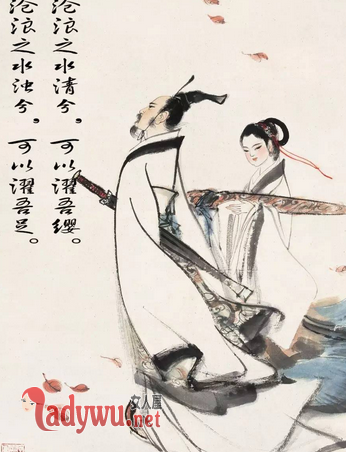 沧浪之水清兮，可以濯吾缨。
沧浪之水浊兮，可以濯吾足。
女人屋
Ladywu.net